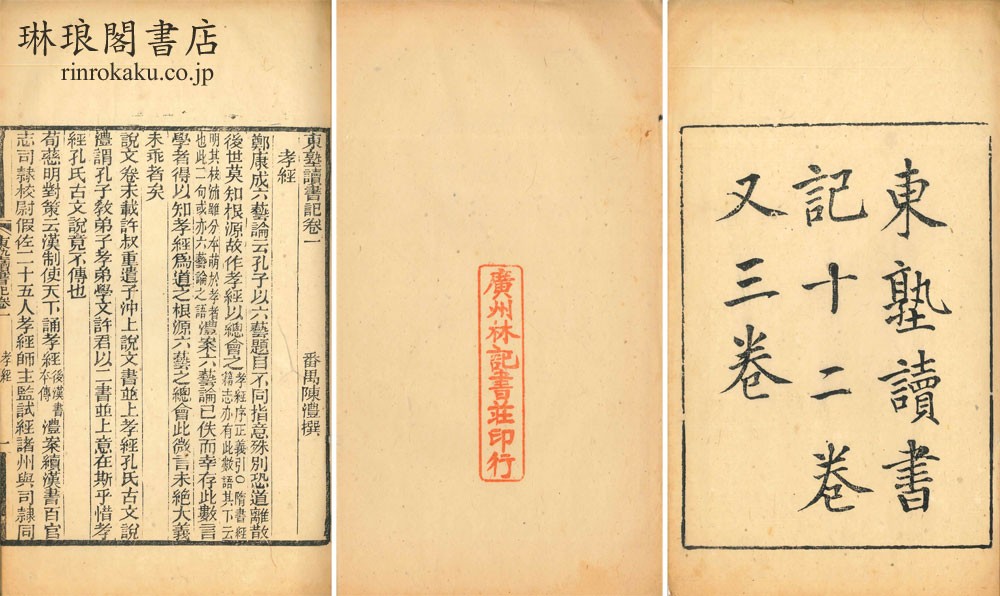 琳琅閣書店
rinrokaku.co.jp
東塾讀書記卷一
番禺陳澧撰
孝經
鄭康成六藝論云孔子以六藝題目不同指意殊別恐道離散
後世莫知根源故作孝經以總會之孝經序正義引○隋書經籍志亦有此數語其下云
明其枝流雖分本萌於孝者也此二句或亦六藝論之語澧案六藝論已佚而幸存此數言
學者得以知孝經爲道之根源六藝之總會此微言未絕大義
未乖者矣
說文卷末載許叔重遣子沖上說文書並上孝經孔氏古文說
澧謂孔子敎弟子孝弟學文許君以二書並上意在斯乎惜孝
經孔氏古文說竟不傳也
荀慈明對策云漢制使天下誦孝經後漢書本傳澧案續漢書百官
志司隸校尉假佐二十五人孝經師主監試經諸州與司隸同
東塾讀書記卷一
孝經
一
廣州林記書莊印行
東塾讀書
記十二卷
又三卷